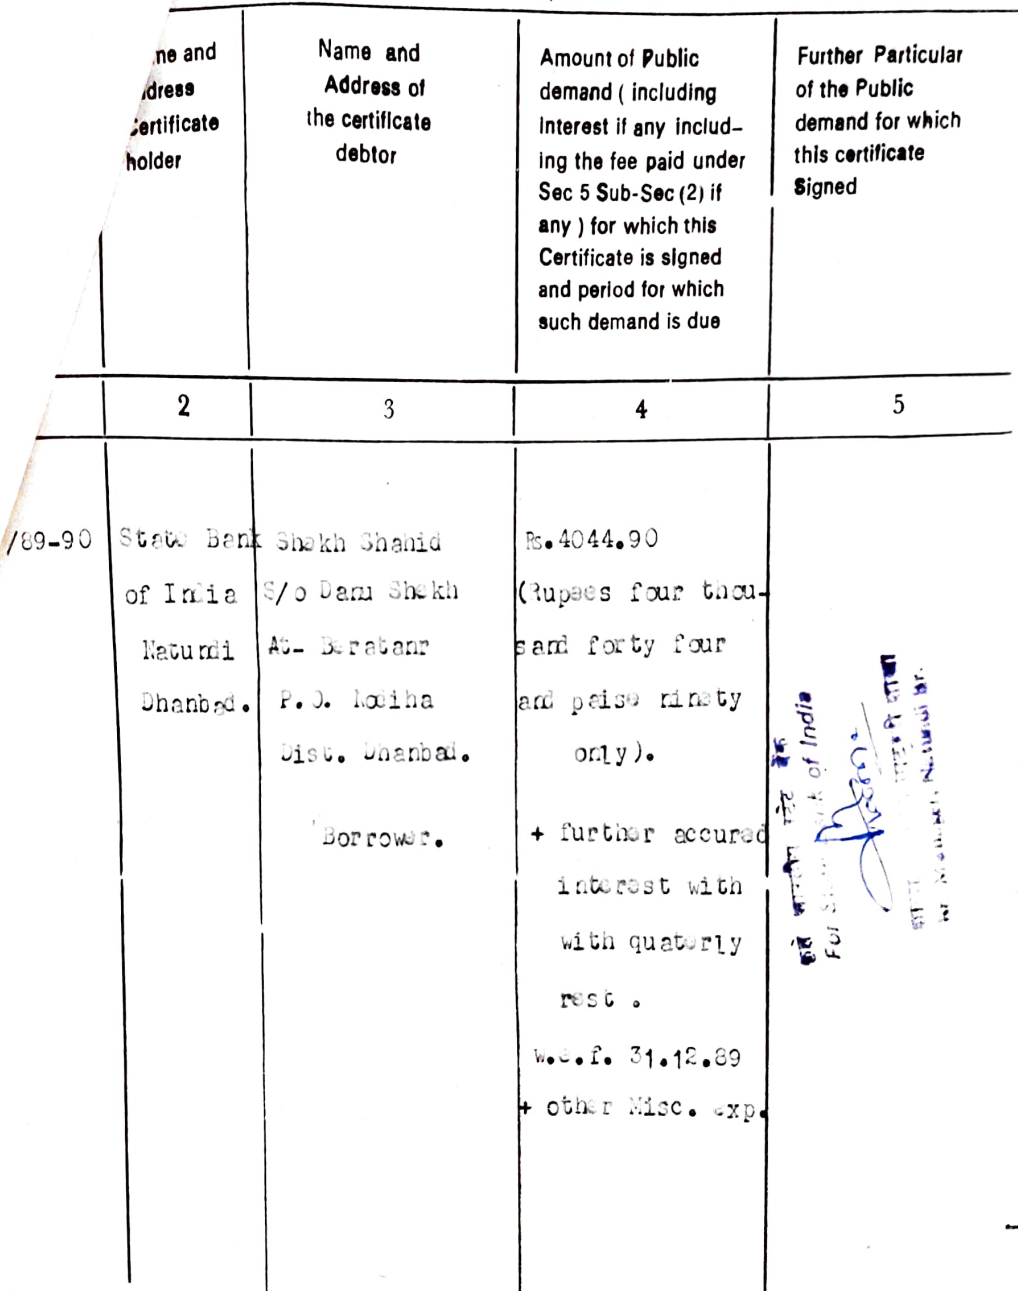 ne and
dress
Certificate
holder
Name and
Address of
the certificate
debtor
Amount of Public
demand ( including
Interest if any includ-
ing the fee paid under
Sec 5 Sub-Sec (2) if
any ) for which this
Certificate is signed
and period for which
such demand is due
Further Particular
of the Public
demand for which
this certificate
Signed
2
3
4
5
/89-90
State Bank
of India
Natundi
Dhanbad.
Shekh Shahid
S/o Danu Shekh
At- Baratanr
P.O.
Dist. Dhanbad.
Borrower.
Rs.4044.90
(Rupees four thou-
sand forty four
and paise ninety
only).
+ further accured
interest with
with quaterly
rest .
w.e.f. 31.12.89
+ other Misc. exp.
For of India
Natundi Br.